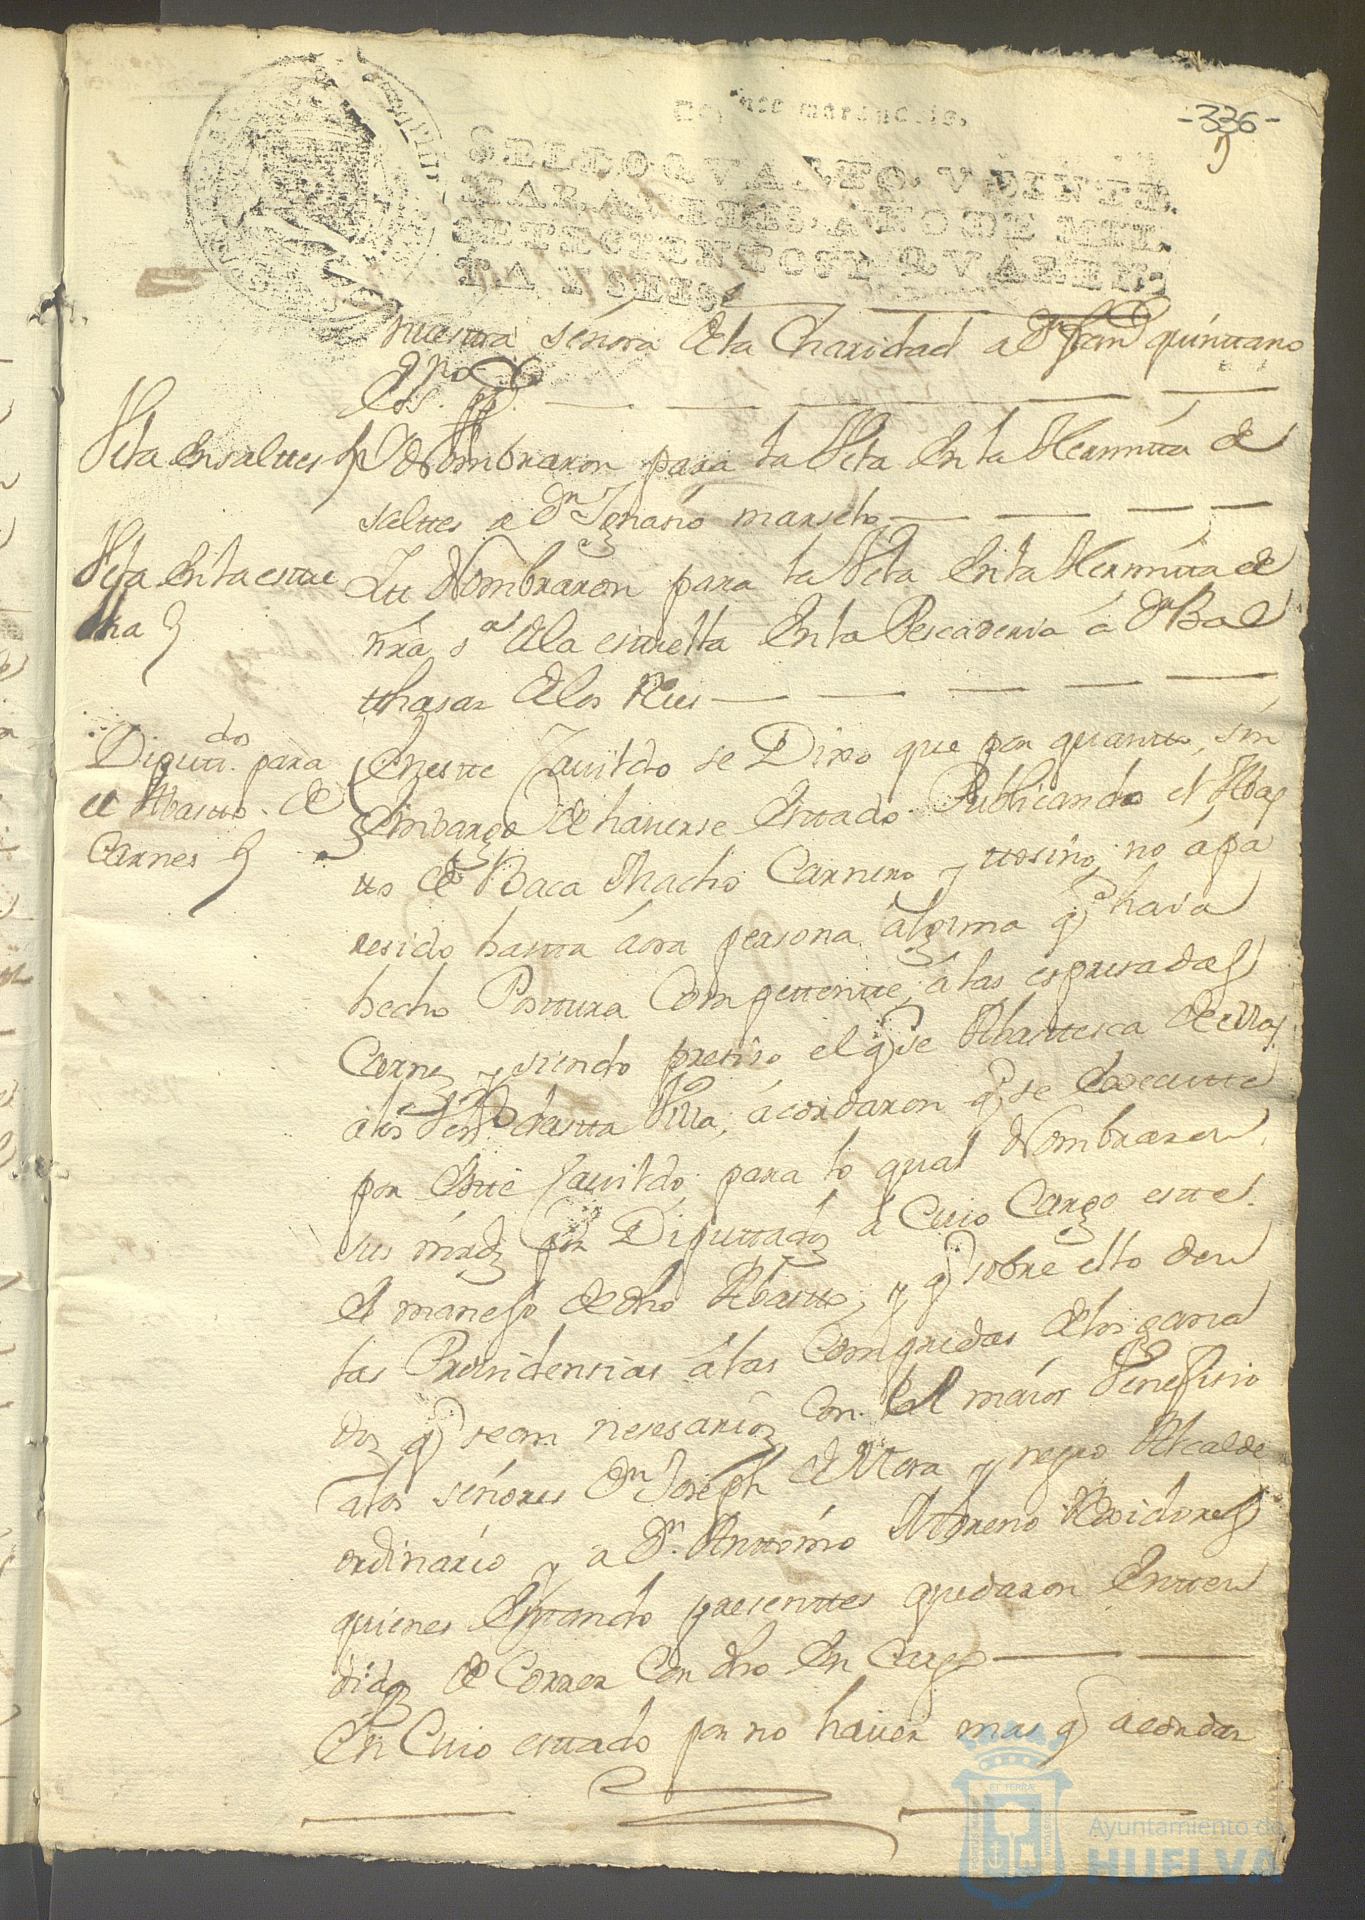 -336-
SELLO QVARTO, VEINTE
MARAVEDIS, AÑO DE MIL
SETECIENTOS Y QVAREN-
TA Y SEIS.
nuestra señora de la Charidad a Dn Juan quintano
Vela en saltes
Nombraron para la Vela en la Hermitta de
saltes a Dn Ignasio
Vela en la estre
lla
Itt Nombraron para la Vela en la Hermitta de
nrã sra de la estrella en la Pescaderia á Dn Bal
thasar de los Ries
Diputtdos para
el Abastto de
Carnes
En este Cavildo se Dixo que por quantto, sin
embargo de haverse esttado Publicando el Abas
tto de Baca Macho Carnero y ttosino, no apa
resido hastta áora persona álguna q haia
hecho Posttura Competentte, á las espresadas
Carnes y siendo presiso el q se Abastesca de ellas
a los desta Villa, ácordaron q se execute
por este Cavildo, para lo qual Nombraron
sus mrds por Diputtados á Cuio Cargo estte
el manejo de dho Abastto, y q sobre ello den
las Providensias á las Compredas de los gana
dos q sean nesesarios Con el maior Benefisio
a los señores Dn Joseph de Mora y negro Alcalde
ordinario y a Dn Anttonio Moreno Rexidores
quienes Esttando presenttes quedaron Entten
didos de Correr Con dho En Cargo
En Cuio esttado por no haver mas q acordar
Ayuntamiento de
HUELVA